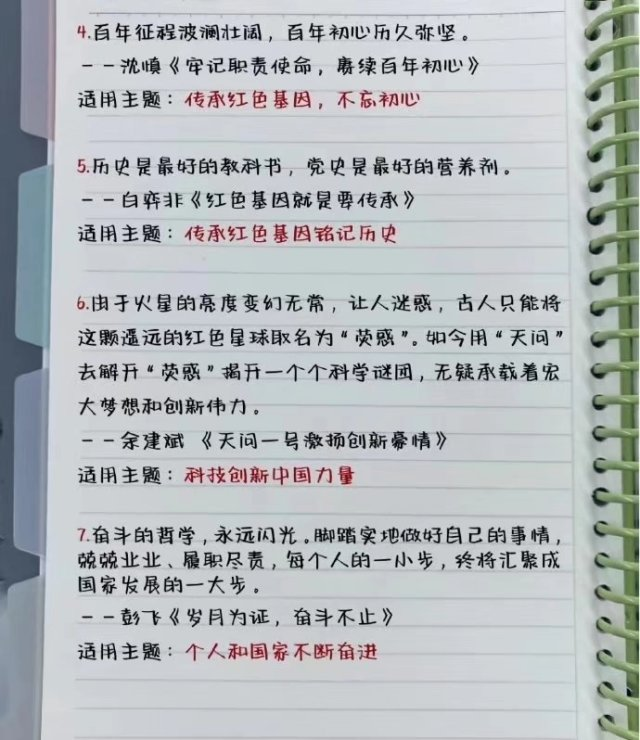 4.百年征程波澜壮阔，百年初心历久弥坚。
——沈慎《牢记职责使命，赓续百年初心》
适用主题：传承红色基因，不忘初心
5.历史是最好的教科书，党史是最好的营养剂。
——白弈非《红色基因就是要传承》
适用主题：传承红色基因铭记历史
6.由于火星的亮度变幻无常，让人迷惑，古人只能将
这颗遥远的红色星球取名为“荧惑”。如今用“天问”
去解开“荧惑”揭开一个个科学谜团，无疑承载着宏
大梦想和创新伟力。
——余建斌 《天问一号激扬创新豪情》
适用主题：科技创新中国力量
7.奋斗的哲学，永远闪光。脚踏实地做好自己的事情，
兢兢业业、履职尽责，每个人的一小步，终将汇聚成
国家发展的一大步。
——彭飞《岁月为证，奋斗不止》
适用主题：个人和国家不断奋进